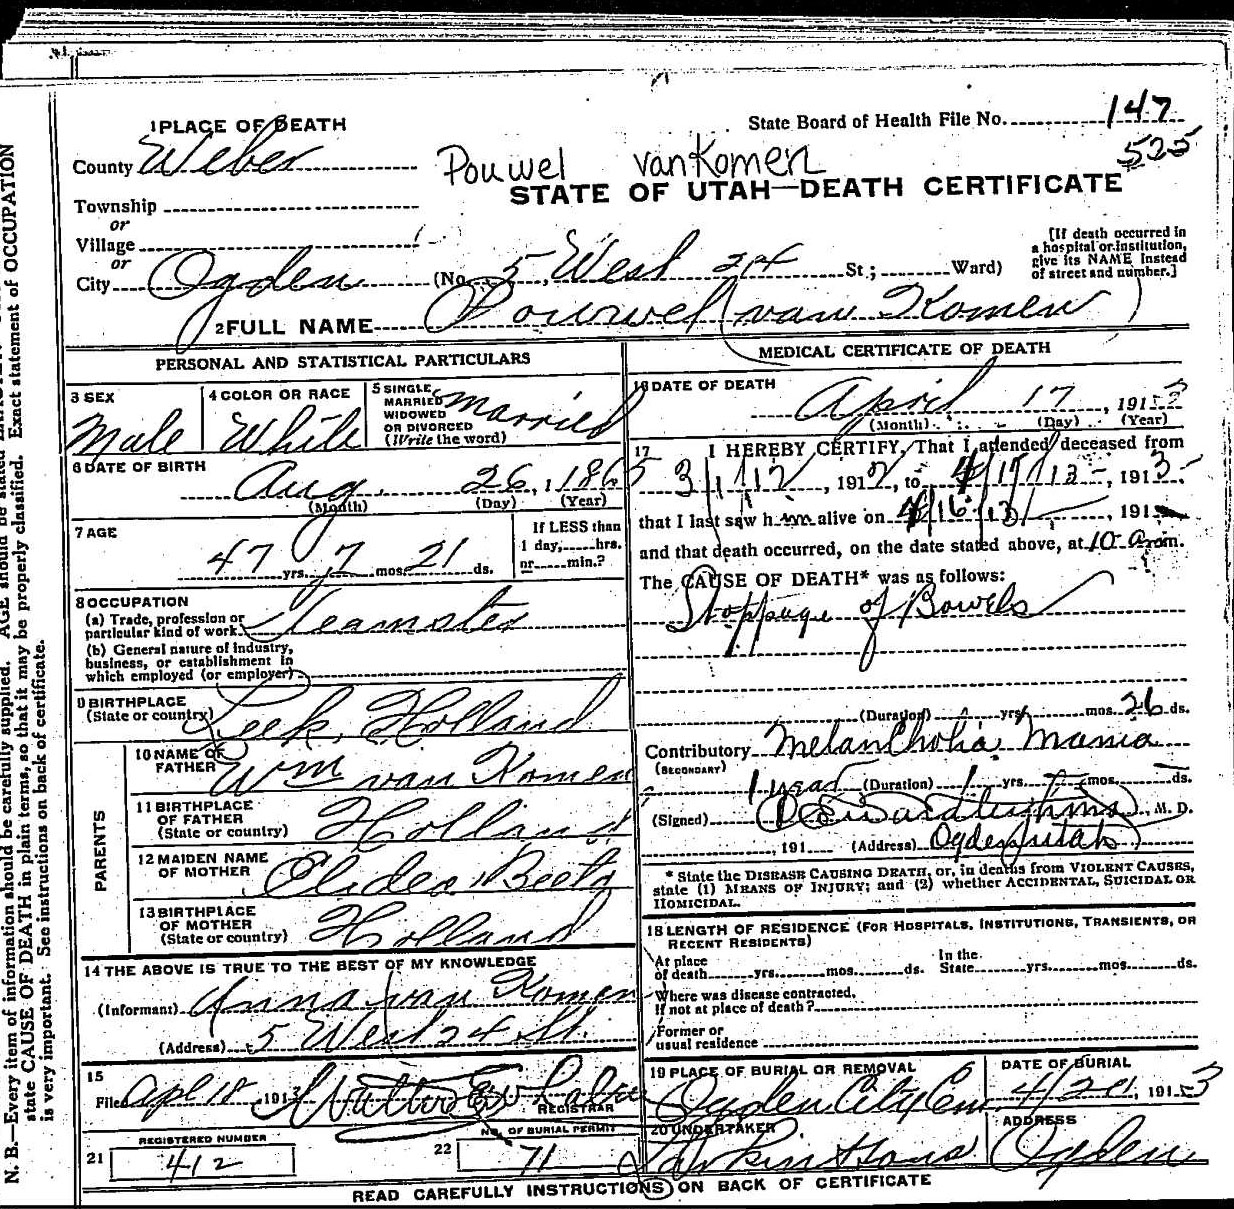 1 PLACE OF DEATH
State Board of Health File No. 147
525
County Weber
Pouwel vanKomen
STATE OF UTAH—DEATH CERTIFICATE
Township
or
Village
or
City Ogden (No. 5 West 24 St; Ward)
[If death occurred in
a hospital or institution,
give its NAME instead
of street and number.]
2 FULL NAME Pouwel (van Komen)
PERSONAL AND STATISTICAL PARTICULARS
3 SEX
Male
4 COLOR OR RACE
White
5 SINGLE
MARRIED
WIDOWED
OR DIVORCED
(Write the word)
Married
6 DATE OF BIRTH
Aug. 26, 1865
(Month) (Day) (Year)
7 AGE
47 yrs. 7 mos. 21 ds.
If LESS than
1 day, hrs.
or min.?
8 OCCUPATION
(a) Trade, profession or
particular kind of work Teamster
(b) General nature of industry,
business, or establishment in
which employed (or employer)
9 BIRTHPLACE
(State or country) Leek, Holland
PARENTS
10 NAME OF
FATHER Wm van Komen
11 BIRTHPLACE
OF FATHER
(State or country) Holland
12 MAIDEN NAME
OF MOTHER
13 BIRTHPLACE
OF MOTHER
(State or country) Holland
14 THE ABOVE IS TRUE TO THE BEST OF MY KNOWLEDGE
(Informant) Anna van Komen
(Address) 5 West 24 St.
15
Filed Apl 18 191 3 Walter
REGISTRAR
REGISTERED NUMBER
21 412
NO. OF BURIAL PERMIT
22 71
MEDICAL CERTIFICATE OF DEATH
16 DATE OF DEATH
April 17, 1913
(Month) (Day) (Year)
17 I HEREBY CERTIFY, That I attended deceased from
3/1/12, 1912, to 4/17/13, 1913
that I last saw him alive on 4/16/13, 191
and that death occurred, on the date stated above, at 10 a m.
The CAUSE OF DEATH* was as follows:
Stoppage of Bowels
(Duration) yrs. mos. 26 ds.
Contributory Melancholia Mania
(SECONDARY)
1 year (Duration) 1 yrs. mos. ds.
(Signed) M. D.
191 (Address) Ogden, Utah
* State the DISEASE CAUSING DEATH, or, in deaths from VIOLENT CAUSES,
state (1) MEANS OF INJURY; and (2) whether ACCIDENTAL, SUICIDAL OR
HOMICIDAL.
18 LENGTH OF RESIDENCE (FOR HOSPITALS, INSTITUTIONS, TRANSIENTS, OR
RECENT RESIDENTS)
At place
of death yrs. mos. ds.
In the
State yrs. mos. ds.
Where was disease contracted,
if not at place of death?
Former or
usual residence
19 PLACE OF BURIAL OR REMOVAL
Ogden City Cem.
DATE OF BURIAL
4/20, 1913
20 UNDERTAKER
Larkin & Sons
ADDRESS
Ogden
READ CAREFULLY INSTRUCTIONS ON BACK OF CERTIFICATE
N. B.—Every item of information should be carefully supplied. AGE should be stated
state CAUSE OF DEATH in plain terms, so that it may be properly classified. Exact statement of OCCUPATION
is very important. See instructions on back of certificate.